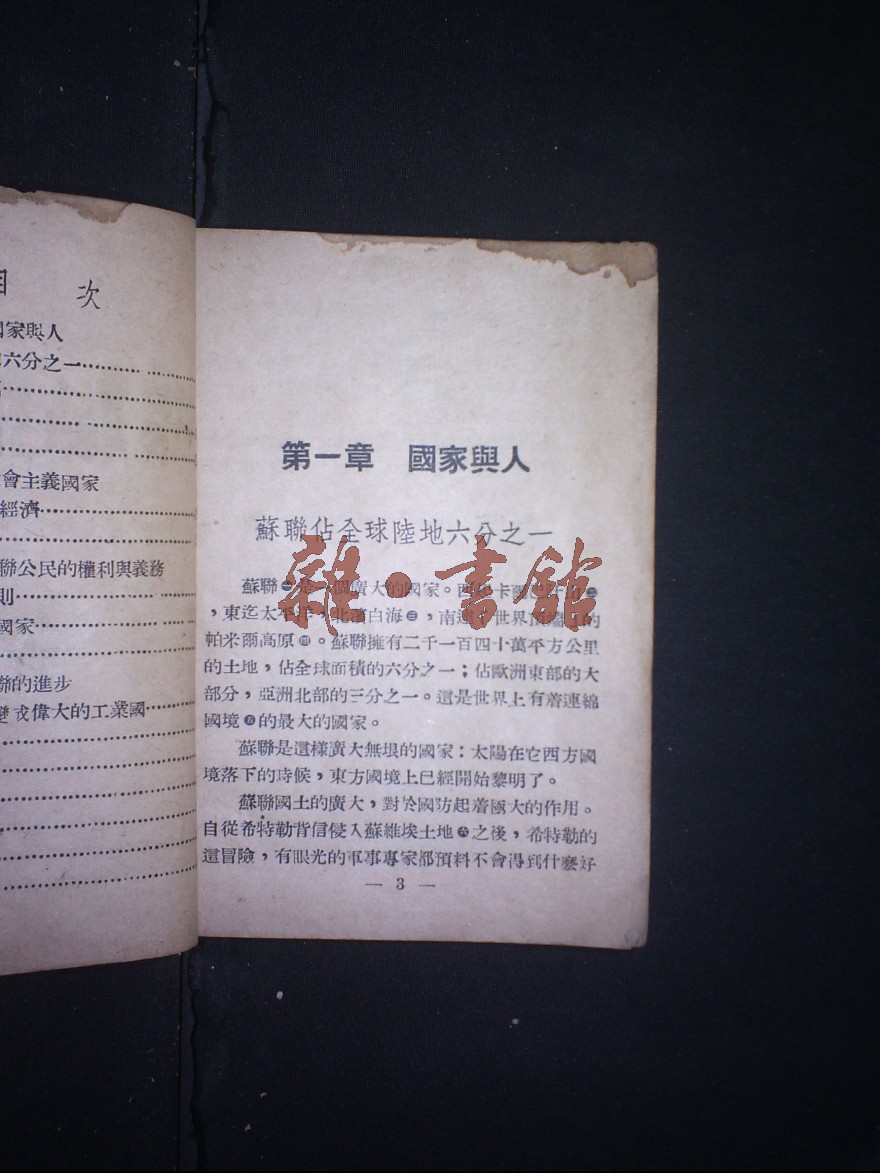 次
國家與人
六分之一
會主義國家
經濟
聯公民的權利與義務
則
國家
聯的進步
變成偉大的工業國
第一章　國家與人
蘇聯佔全球陸地六分之一
雜·書館
蘇聯㊀是一個廣大的國家。西 卡爾 ㊁
，東迄太平洋，北濱白海㊂，南 世界 的
帕米爾高原㊃。蘇聯擁有二千一百四十萬平方公里
的土地，佔全球面積的六分之一；佔歐洲東部的大
部分，亞洲北部的三分之一。這是世界上有着連綿
國境㊄的最大的國家。
蘇聯是這樣廣大無垠的國家：太陽在它西方國
境落下的時候，東方國境上已經開始黎明了。
蘇聯國土的廣大，對於國防起着極大的作用。
自從希特勒背信侵入蘇維埃土地㊅之後，希特勒的
這冒險，有眼光的軍事專家都預料不會得到什麼好
— 3 —